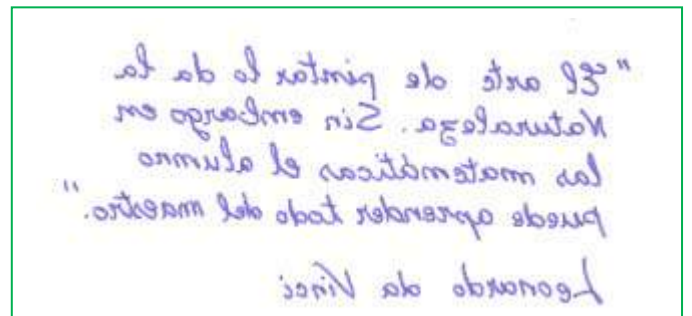 "El arte de pintar lo da la
Naturaleza. Sin embargo en
las matemáticas el alumno
puede aprender todo del maestro."
Leonardo da Vinci